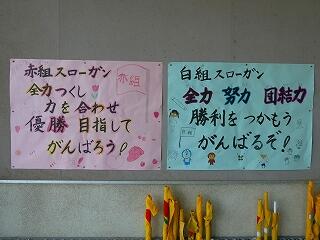 赤組スローガン
赤組
全力つくし
力を合わせ
優勝目指して
がんばろう!
白組スローガン
全力 努力 団結力
勝利をつかもう
がんばるぞ!